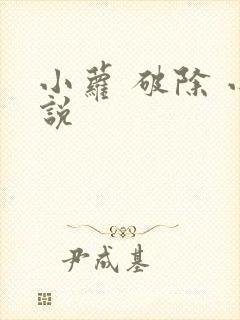 小蘿 破除 小
說
尹成基